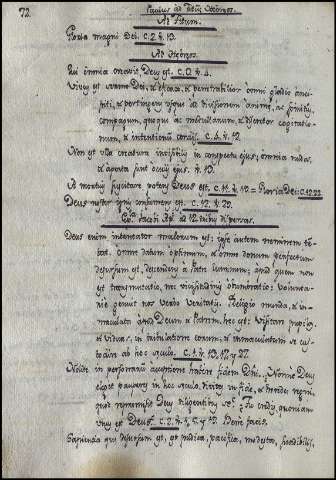 72.
Paulus ad Titum, Hebræos.
Ad Titum.
Gloria magni Dei. c. 2. v. 13.
Ad Hebræos.
Qui omnia creavit, Deus est. c. 3. v. 4.
Vivus est sermo Dei, et efficax, et penetrabilior omni gladio anci-
piti, et pertingens usque ad divisionem animæ, ac spiritus,
compagum, quoque ac medullarum, et discretor cogitatio-
num, et intentionum cordis. c. 4. v. 12.
Non est ulla creatura invisibilis in conspectu ejus; omnia nuda,
et aperta sunt oculis ejus. v. 13.
A mortuis suscitare potens Deus est. c. 11. v. 19. = Gloria Dei c.
Deus noster ignis consumens est. c. 12. v. 29.
ad 12 tribus dispersas.
Deus enim intentator malorum est; ipse autem neminem ten-
tat. Omne datum optimum, et omne donum perfectum
desursum est, descendens a Patre luminum; apud quem non
est transmutatio, nec vicissitudinis obumbratio: volunta-
rie genuit nos verbo veritatis. Religio munda, et im-
maculata apud Deum et Patrem, hæc est: visitare pupillos,
et viduas, in tribulatione eorum, et immaculatum se cu-
stodire ab hoc sæculo. c. 1. v. 13, 17 et 27.
Nolite in personarum acceptione habere fidem Dni. Nonne Deus
elegit pauperes in hoc sæculo, divites in fide, et hæredes regni,
quod repromisit Deus diligentibus se? Tu credis quoniam
unus est Deus. c. 2. v. 1, 5, et 19. Bene facis.
Sapientia quæ desursum est, est pudica, pacifica, modesta, suadibilis,